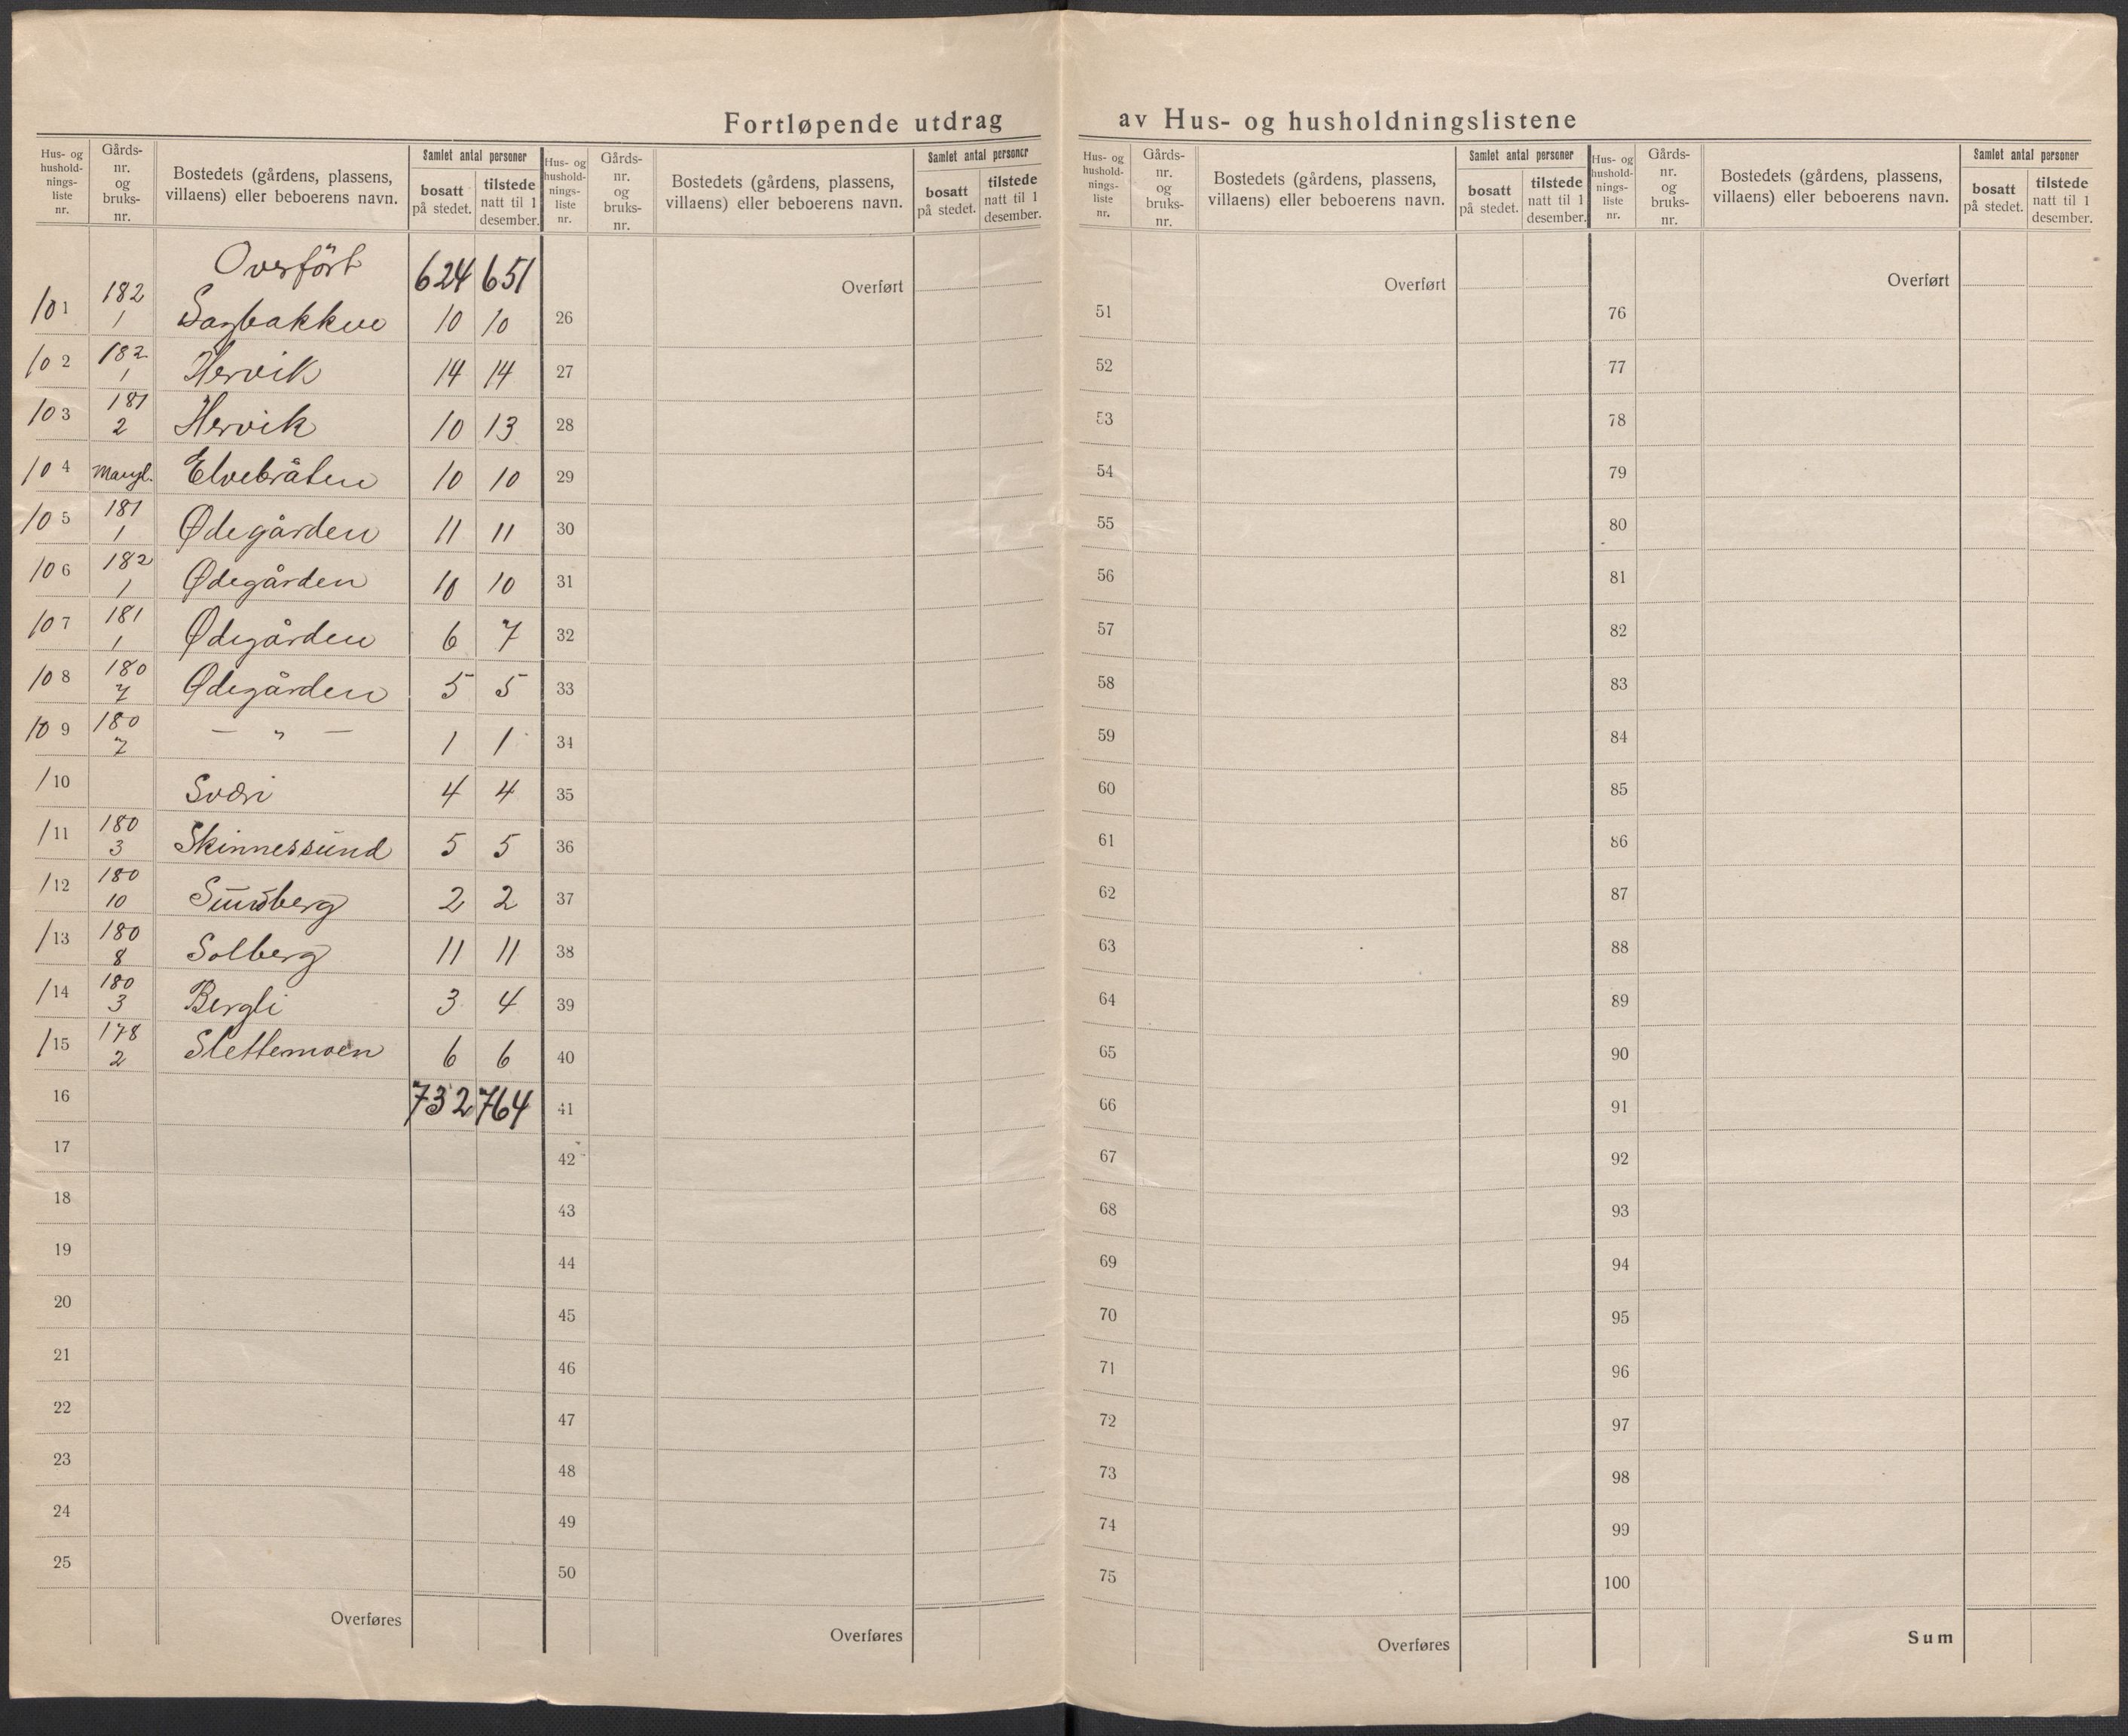 Fortløpende utdrag av Hus- og husholdningslistene
Hus- og hushold-nings-liste nr. Gårds-nr. og bruks-nr. Bostedets (gårdens, plassens, villaens) eller beboerens navn. Samlet antal personer bosatt på stedet. tilstede natt til 1 desember.
Overført 624 651
101 182 1 Sagbakken 10 10
102 182 1 Hervik 14 14
103 181 2 Hervik 10 13
104 Mangl. Elvebråten 10 10
105 181 1 Ødegården 11 11
106 182 1 Ødegården 10 10
107 181 1 Ødegården 6 7
108 180 7 Ødegården 5 5
109 180 7 — " — 1 1
110 Sværi 4 4
111 180 3 Skinnessund 5 5
112 180 10 Sundberg 2 2
113 180 8 Solberg 11 11
114 180 3 Bergli 3 4
115 178 2 Slettemoen 6 6
16 732 764
17
18
19
20
21
22
23
24
25
Overføres
Hus- og hushold-nings-liste nr. Gårds-nr. og bruks-nr. Bostedets (gårdens, plassens, villaens) eller beboerens navn. Samlet antal personer bosatt på stedet. tilstede natt til 1 desember.
Overført
26
27
28
29
30
31
32
33
34
35
36
37
38
39
40
41
42
43
44
45
46
47
48
49
50
Overføres
Hus- og hushold-nings-liste nr. Gårds-nr. og bruks-nr. Bostedets (gårdens, plassens, villaens) eller beboerens navn. Samlet antal personer bosatt på stedet. tilstede natt til 1 desember.
Overført
51
52
53
54
55
56
57
58
59
60
61
62
63
64
65
66
67
68
69
70
71
72
73
74
75
Overføres
Hus- og hushold-nings-liste nr. Gårds-nr. og bruks-nr. Bostedets (gårdens, plassens, villaens) eller beboerens navn. Samlet antal personer bosatt på stedet. tilstede natt til 1 desember.
Overført
76
77
78
79
80
81
82
83
84
85
86
87
88
89
90
91
92
93
94
95
96
97
98
99
100
Sum